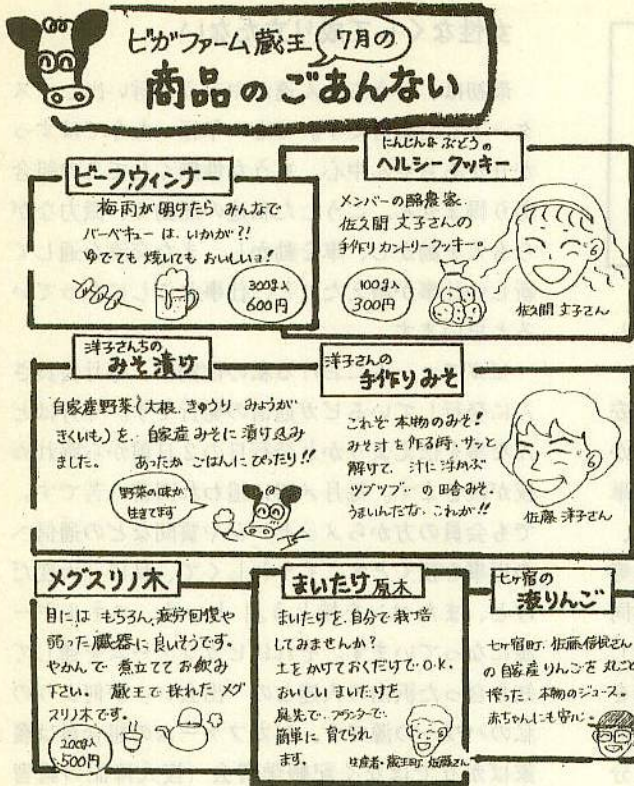 ビガファーム蔵王 7月の
商品のごあんない
ビーフウィンナー
梅雨が明けたら みんなで
バーベキューは、いかが?!
ゆでても 焼いても おいしいョ!
300g入
600円
にんじん&ぶどうの
ヘルシークッキー
メンバーの酪農家
佐久間 文子さんの
手作りカントリークッキー。
100g入
300円
佐久間 文子さん
洋子さんちの
みそ漬け
自家産野菜(大根、きゅうり、みょうが
きくいも)を、自家産みそに漬け込み
ました。 あったか ごはんに ぴったり!!
野菜の味が
生きてます
洋子さんの
手作りみそ
これぞ 本物のみそ!
みそ汁を作る時、サッと
解けて、汁に浮かぶ
ツブツブ、この田舎みそ
うまいんだな、これが!!
佐藤 洋子さん
メグスリノ木
目には もちろん、疲労回復や
弱った臓器に良いそうです。
やかんで 煮立てて お飲み
下さい。 蔵王で採れた メグ
スリノ木です。
200g入
500円
まいたけ原木
まいたけを、自分で栽培
してみませんか?
土をかけておくだけでO.K.
おいしい まいたけを
庭先で、プランターで、
簡単に 育てられ
ます。
生産者・蔵王町、佐藤さん
七ヶ宿の
液りんご
七ヶ宿町、佐藤
の自家産りんごを 丸ごと
搾った、本物のジュース。
赤ちゃんにも安心。